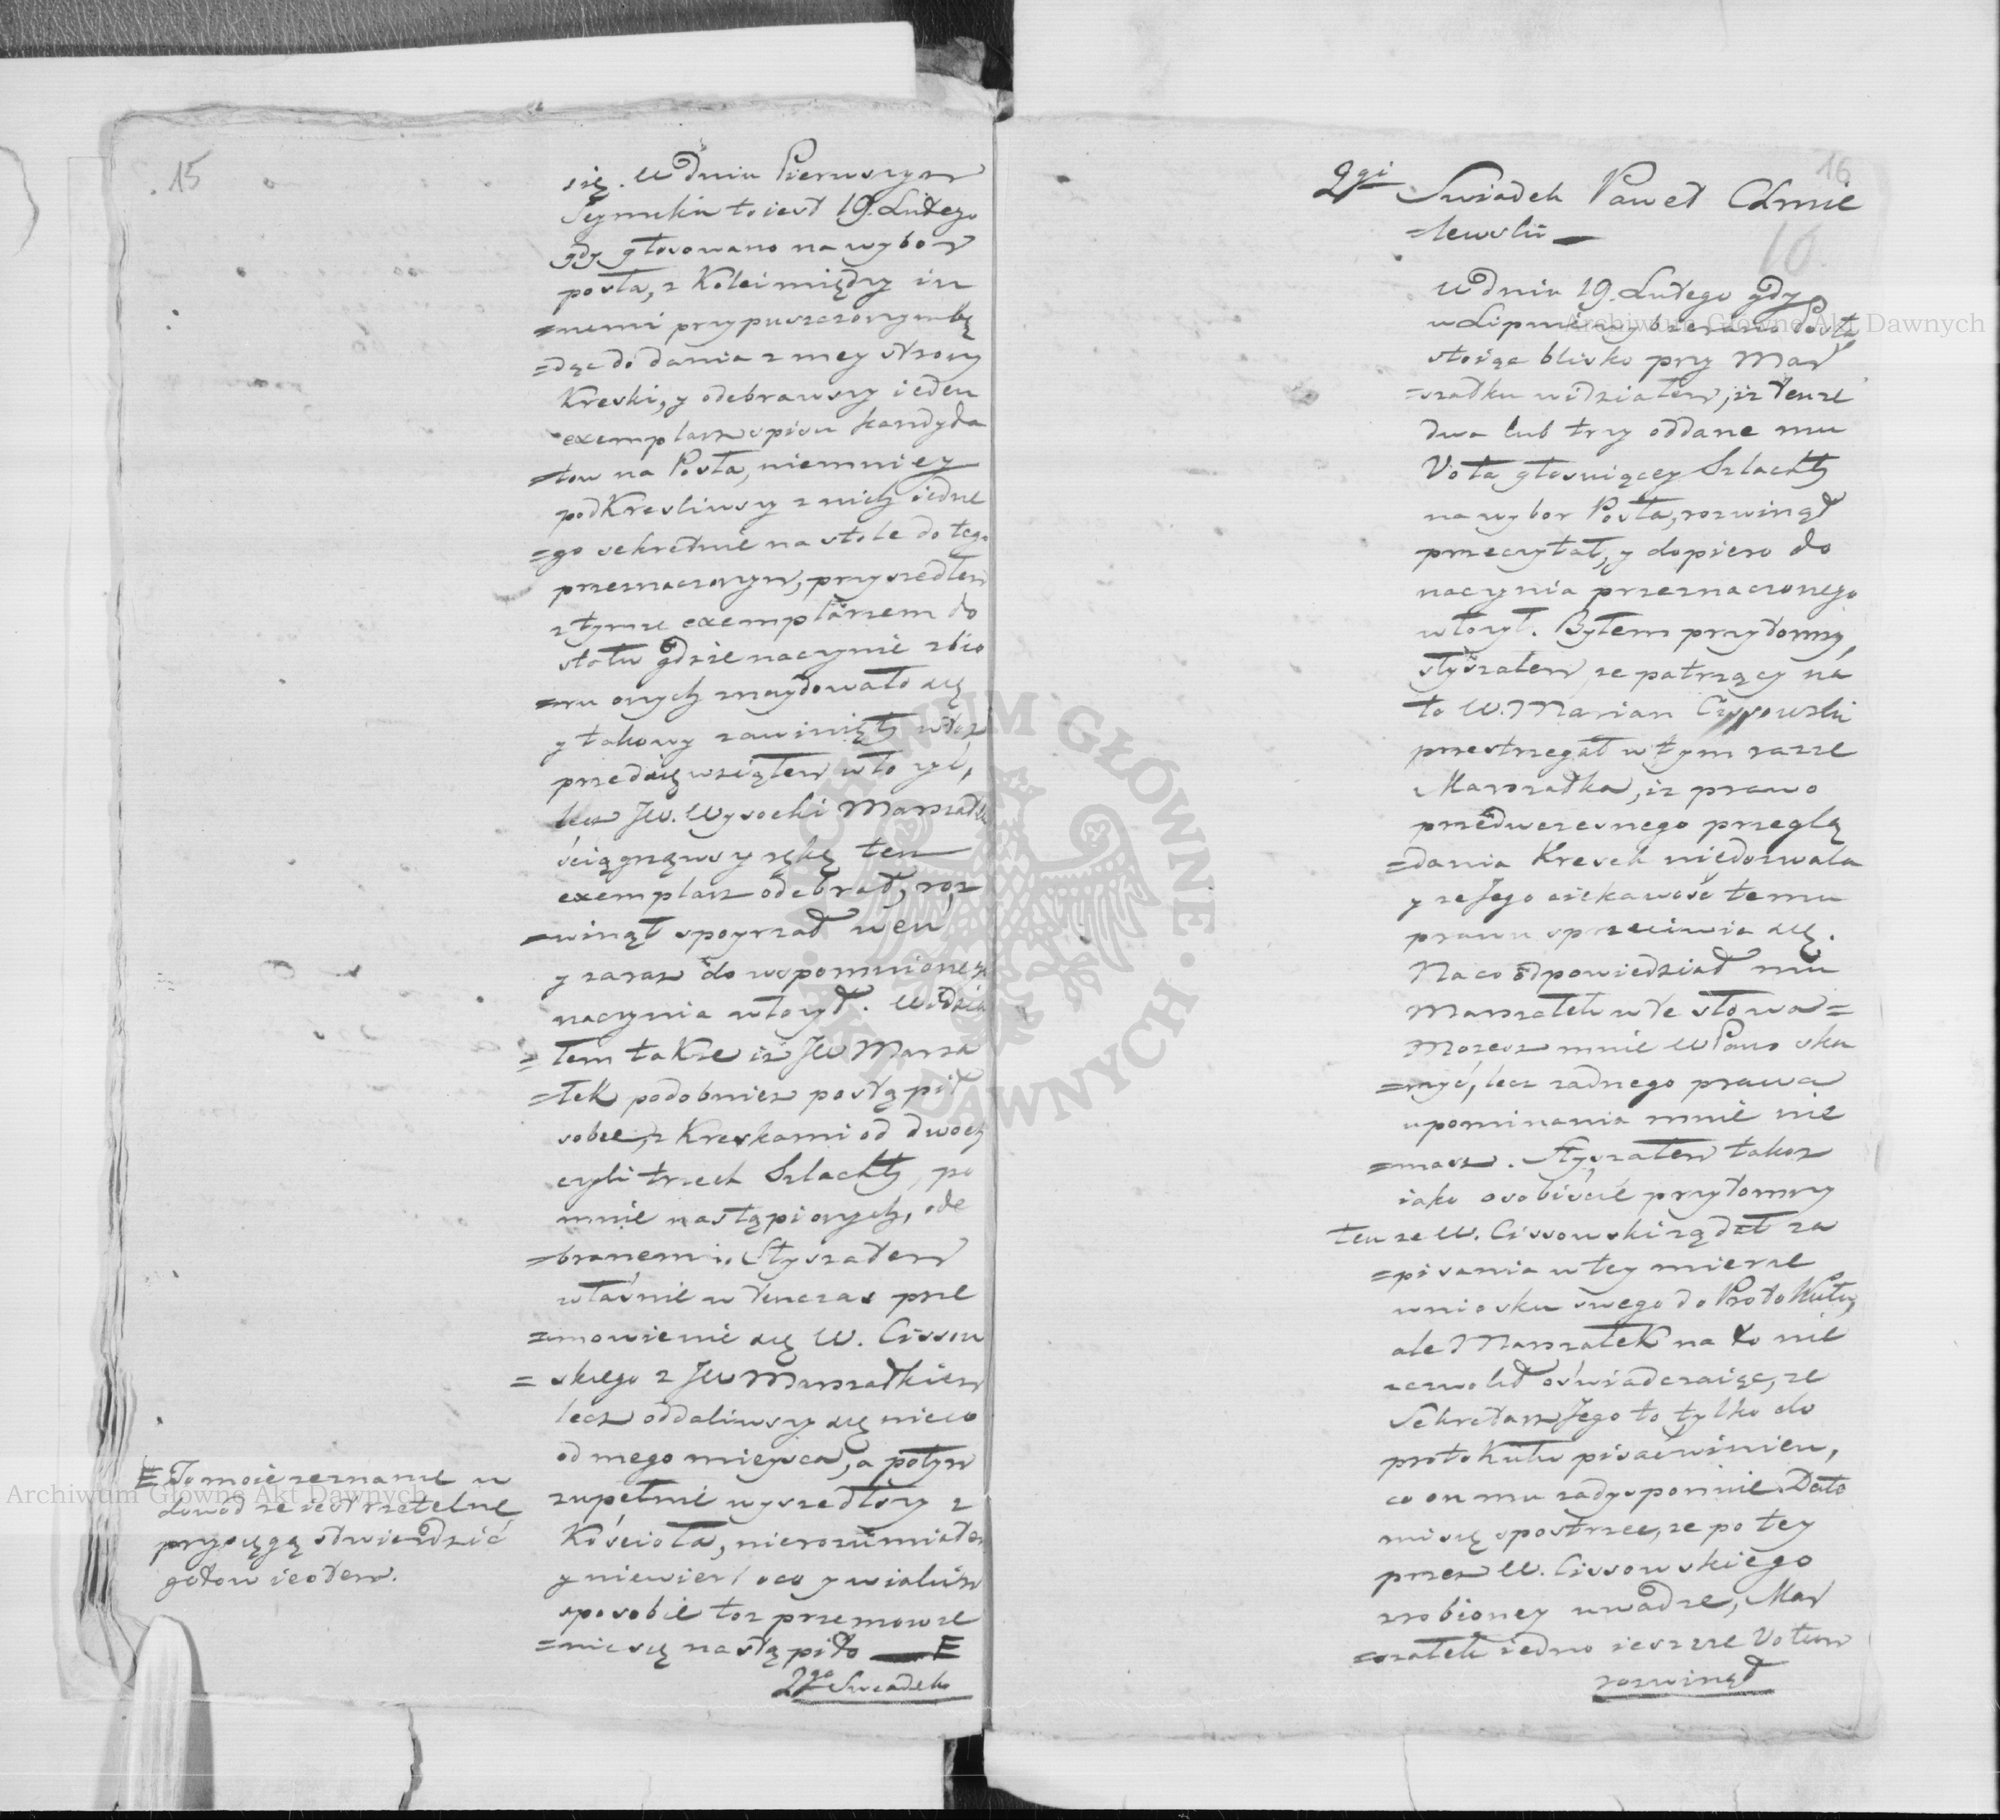 15
się. W Dniu Pierwszym
Seymiku to iest 19. Lutego
gdy głosowano na wybor
posła, z Kolei między in
=nemi przypuszczonym bę
=dąc do dania z mey strony
Kreski, y odebrawszy ieden
exemplarz spisu kandyda
=tow na Posła, niemniey
podKresliwszy z nich iedne
=go sekretnie na stole do tego
przeznaczonym, przyszedłem
z tymże exemplarzem do
stołu gdzie naczynie zbio
=ru onych znaydowało się
y takowy zawinięty
przedsięwziąłem włożyć,
lecz JW. Wysocki Marszałek
ściągnąwszy rękę ten
exemplarz odebrał, roz
=winął spoyrzał weń
y zaraz do wspomnionego
naczynia włożył. Widzia
=łem także iż JW Marsza
=łek podobnież postąpił
sobie, z Kreskami od dwoch
czyli trzech Szlachty, po
mnie nastąpionych, ode
=branemi. Słyszałem
właśnie w tenczas prze
=mowienie się W. Cissow
=skiego z JW Marszałkiem
lecz oddaliwszy się nieco
od mego mieysca, a potym
zupełnie wyszedłszy z
Kościoła, nierozumiałem
y niewiem oco y w iakim
sposobie toż przemowie
=nie się nastąpiło — E
2go Swiadek
E To moie zeznanie w
dowod że iest rzetelne
przysięgą stwierdzić
gotow iestem.
16
2gi Swiadek Paweł Chmie
=lewski —
10.
W dniu 19. Lutego gdy
w Lipnie wybierano Posła
stoiąc blisko przy Mar
=szałku widziałem, iż tenże
dwa lub trzy oddane mu
Vota głosuiącey Szlachty
na wybor Posła, rozwinął
przeczytał, y dopiero do
naczynia przeznaczonego
włożył. Byłem przytomny,
słyszałem że patrzący na
to W. Marian Cissowski
przestrzegał w tym razie
Marszałka, iż prawo
przedwczesnego przeglą
=dania Kresek niedozwala
y że Jego ciekawość temu
prawu sprzeciwia się.
Na co odpowiedział mu
Marszałek w te słowa=
Możesz mnie WPan ska
=rżyć, lecz żadnego prawa
upominania mnie nie
=masz. Słyszałem także
iako osobiście przytomny
tenże W. Cissowski żądał za
=pisania w tey mierze
wniosku swego do Protokułu,
ale Marszałek na to nie
zezwolił oświadczaiąc, że
Sekretarz Jego to tylko do
protokułu pisać winien,
co on mu zadysponuie. Dało
mi się spostrzec, że po tey
przez W. Cissowskiego
zrobioney uwadze, Mar
=szałek iedno ieszcze Votum
rozwinął
Archiwum Główne Akt Dawnych
Archiwum Główne Akt Dawnych
ARCHIWUM GŁÓWNE · AKT DAWNYCH ·